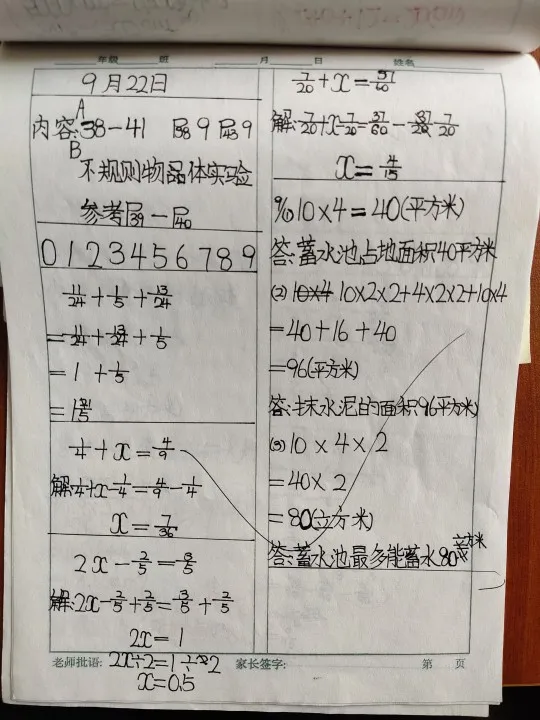 年级 班 月 日 姓名
9月22日
A
内容:38-41 P38 9 P43 9
B
不规则物品体实验
参考P39-P40
0 1 2 3 4 5 6 7 8 9
11/24+1/5+13/24
=11/24+13/24+1/5
=1+1/5
=1 1/5
1/4+x=4/9
解:1/4+x-1/4=4/9-1/4
x=7/36
2x-2/5=3/5
解:2x-2/5+2/5=3/5+2/5
2x=1
2x÷2=1÷2
x=0.5
7/20+x=37/60
解:7/20+x-7/20=37/60-7/20
x=4/15
9(1)10×4=40(平方米)
答:蓄水池占地面积40平方米
(2)10×4 10×2×2+4×2×2+10×4
=40+16+40
=96(平方米)
答:抹水泥的面积96平方米)
(3)10×4×2
=40×2
=80(立方米)
答:蓄水池最多能蓄水80立方米
老师批语: 家长签字: 第 页